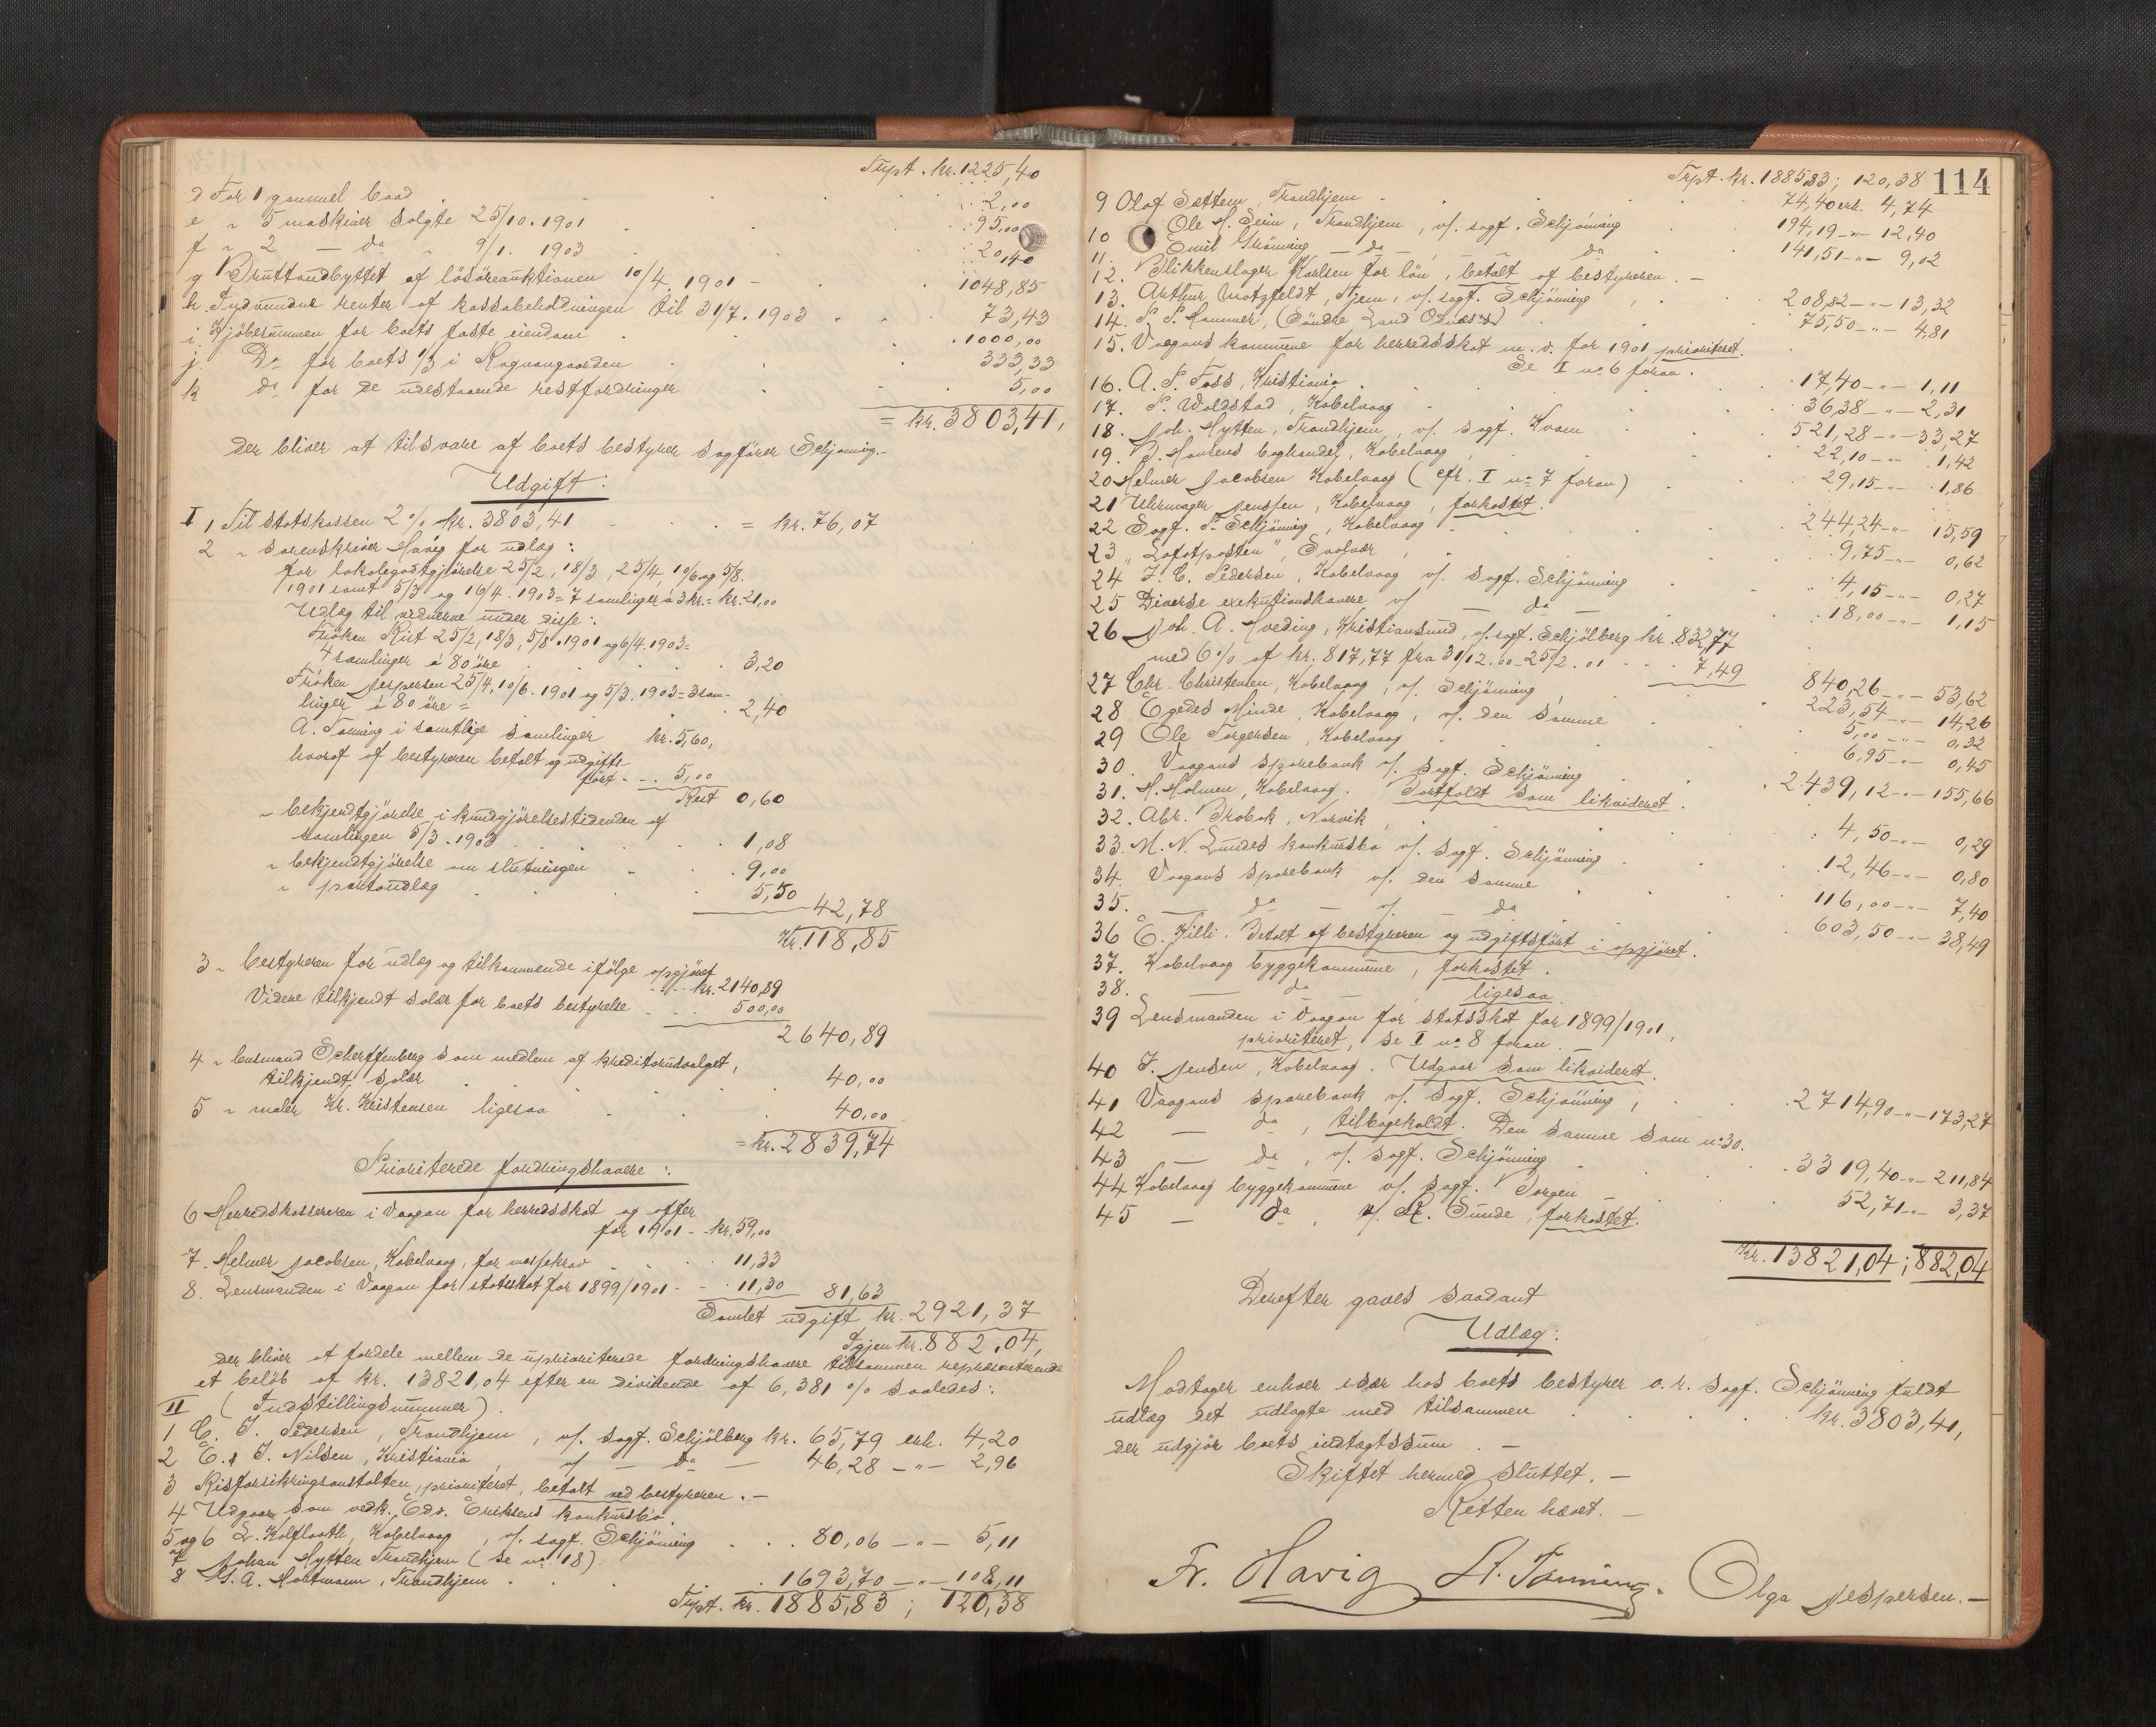 Trpt. kr. 1225,40
d For 1 gammel baad 2,00
e " 5 maskiner solgte 25/10. 1901 95,00
f " 2 — da 9/1. 1903 20,40
g Bruttoudbyttet af lösöreauktionen 10/4. 1901 - 1048,85
h. Indvundne renter af kassabeholdningen til 31/7. 1903 73,43
i. Kjöbesummen for boets faste eiendom 1000,00
j Do for boets 1/3 i Rognangaarden 333,33
k do for de udestaaende restfordringer 5,00
= kr. 3803,41,
der bliver at tilsvare af boets bestyrer sagförer Schjönning.-
Udgift:
I 1, Til statskassen 2 % kr. 3803,41 = kr. 76,07
2 " sorenskriver Havig for udlæg:
for lokalegodtgjörelse 25/2, 18/3, 25/4, 10/6 og 5/8.
1901 samt 5/3 og 16/4. 1903 = 7 samlinger á 3 kr. = kr. 21,00
Udlæg til vidnerne under disse:
Fröken Rist 25/2, 18/3, 5/8. 1901 og 6/4. 1903 =
4 samlinger á 80 öre 3,20
Fröken Jespersen 25/4, 10/6. 1901 og 5/3. 1903 = 3 sam-
linger á 80 öre = 2,40
A. Tönning i samtlige samlinger kr. 5,60,
hvoraf af bestyreren betalt og udgifts-
fört - - 5,00
Rest 0,60
" bekjendtgjörelse i kundgjörelsestidenden af
samlingen 5/3. 1903 1,08
" bekjendtgjörelse om slutningen 9,00
" portoudlæg 5,50
42,78
Kr. 118,85
3 " bestyreren for udlæg og tilkommende ifölge opgjöret
kr. 2140,89
Videre tilkjendt solær for boets bestyrelse 500,00
2640,89
4 " lensmand Scherffenberg som medlem af kreditorudvalget,
tilkjendt solær 40,00
5 " maler Kr. Kristensen ligesaa 40,00
= kr. 2839,74
Prioriterede fordringshavere:
6 Herredskassereren i Vaagan for herredsskat og offer
for 1901 - kr. 59,00
7. Helmer Jacobsen, Kabelvaag, for massekrav 11,33
8. Lensmanden i Vaagan for statsskat for 1899/1901 - 11,30 81,63
Samlet udgift kr. 2921,37
Igjen kr. 882,04,
der bliver at fordele mellem de uprioriterede fordringshavere tilsammen repræsenterende
et belöb af kr. 13821,04 efter en dividende af 6,381 % saaledes:
II (Indstillingsnummer).
1 C. I. Pedersen, Trondhjem, v/. sagf. Schjölberg kr. 65,79 erh. 4,20
2 E. & I. Nilsen, Kristiania, v/ — da — 46,28 —"— 2,96
3 Risforsikringsanstalten, prioriteret, betalt ved bestyreren. -
4 Udgaar som vedk. Edv. Eriksens konkursbo.
5 og 6 L. Kolflaath, Kabelvaag, v/. sagf. Schjönning 80,06 —"— 5,11
7 Johan Hytten Trondhjem (se no 18).
8 M. A. Hartmann, Trondhjem 1693,70 —"— 108,11
Trpt. kr. 1885,83; 120,38
Trpt. kr. 1885,83; 120,38 114
9 Olaf Sættem, Trondhjem 74,40 erh. 4,74
10 Ole H. Seim, Trondhjem, v/. sagf. Schjönning 194,19 —"— 12,40
11. Emil Grönning — da — da 141,51 —"— 9,02
12. Blikkenslager Karlsen for lön, betalt af bestyreren. -
13. Arthur Motzfeldt, Hjem, v/. sagf. Schjönning 208,82 —"— 13,32
14. P. P. Hammer, (Söndre Land Odnæs) 75,50 —"— 4,81
15. Vaagans kommune for herredsskat m. v. for 1901 prioriteret.
Se I no 6 foran.
16. A. P. Foss, Kristiania 17,40 —"— 1,11
17. P. Woldstad, Kabelvaag 36,38 —"— 2,31
18. Joh. Hytten, Trondhjem, v/. sagf. Kvam 521,28 —"— 33,27
19. B. Hansens boghandel, Kabelvaag 22,10 —"— 1,42
20 Helmer Jacobsen Kabelvaag (cfr. I no 7 foran) 29,15 —"— 1,86
21 Uhrmager Jenssen, Kabelvaag, forkastet.
22 Sagf. P. Schjönning, Kabelvaag 244,24 —"— 15,59
23 "Lofotposten", Svolvær 9,75 —"— 0,62
24 J. C. Pedersen, Kabelvaag v/. sagf. Schjönning 4,15 —"— 0,27
25 Diverse exekutionshavere v/ — da — 18,00 —"— 1,15
26 Joh. A. Hveding, Kristiansund, v/. sagf. Schjölberg kr. 832,77
med 6 % af kr. 817,77 fra 31/12.00 - 25/2.01 7,49
840,26 —"— 53,62
27 Chr. Christensen, Kabelvaag, v/. Schjönning 223,54 —"— 14,26
28 Egedes Minde, Kabelvaag, v/. den samme 5,00 —"— 0,32
29 Ole Torgersen, Kabelvaag 6,95 —"— 0,45
30. Vaagans sparebank v/. sagf. Schjönning 2439,12 —"— 155,66
31. H. Holmen, Kabelvaag. Bortfaldt som likvideret.
32. Abr. Brobak, Narvik 4,50 —"— 0,29
33. M. N. Lundes konkursbo v/. sagf. Schjönning 12,46 —"— 0,80
34. Vaagans sparebank v/. den samme 116,00 —"— 7,40
35. — da — v/. da 603,50 —"— 38,49
36 E. Killi. Betalt af bestyreren og udgiftsfört i opgjöret.
37. Kabelvaag byggekommune, forkastet.
38. — da — ligesaa
39 Lensmanden i Vaagan for statsskat for 1899/1901,
prioriteret, se I no 8 foran.
40 J. Jensen, Kabelvaag. Udgaar som likvideret.
41 Vaagans sparebank v/. sagf. Schjönning, 2714,90 —"— 173,27
42 — da, tilbagekaldt. Den samme som no 30.
43 — da, v/. sagf. Schjönning 3319,40 —"— 211,84
44 Kabelvaag byggekommune v/. sagf. Borgen 52,71 —"— 3,37
45 — da, v/. Sunde, forkastet.
Kr. 13821,04; 882,04
Derefter gaves saadant
Udlæg:
Modtager enhver især hos boets bestyrer o. r. sagf. Schjönning fuldt
udlæg det udlagte med tilsammen kr. 3803,41,
der udgjör boets indtægtssum. -
Skiftet hermed sluttet. -
Retten hævet. -
Fr. Havig A. Tönning. Olga Jespersen. -